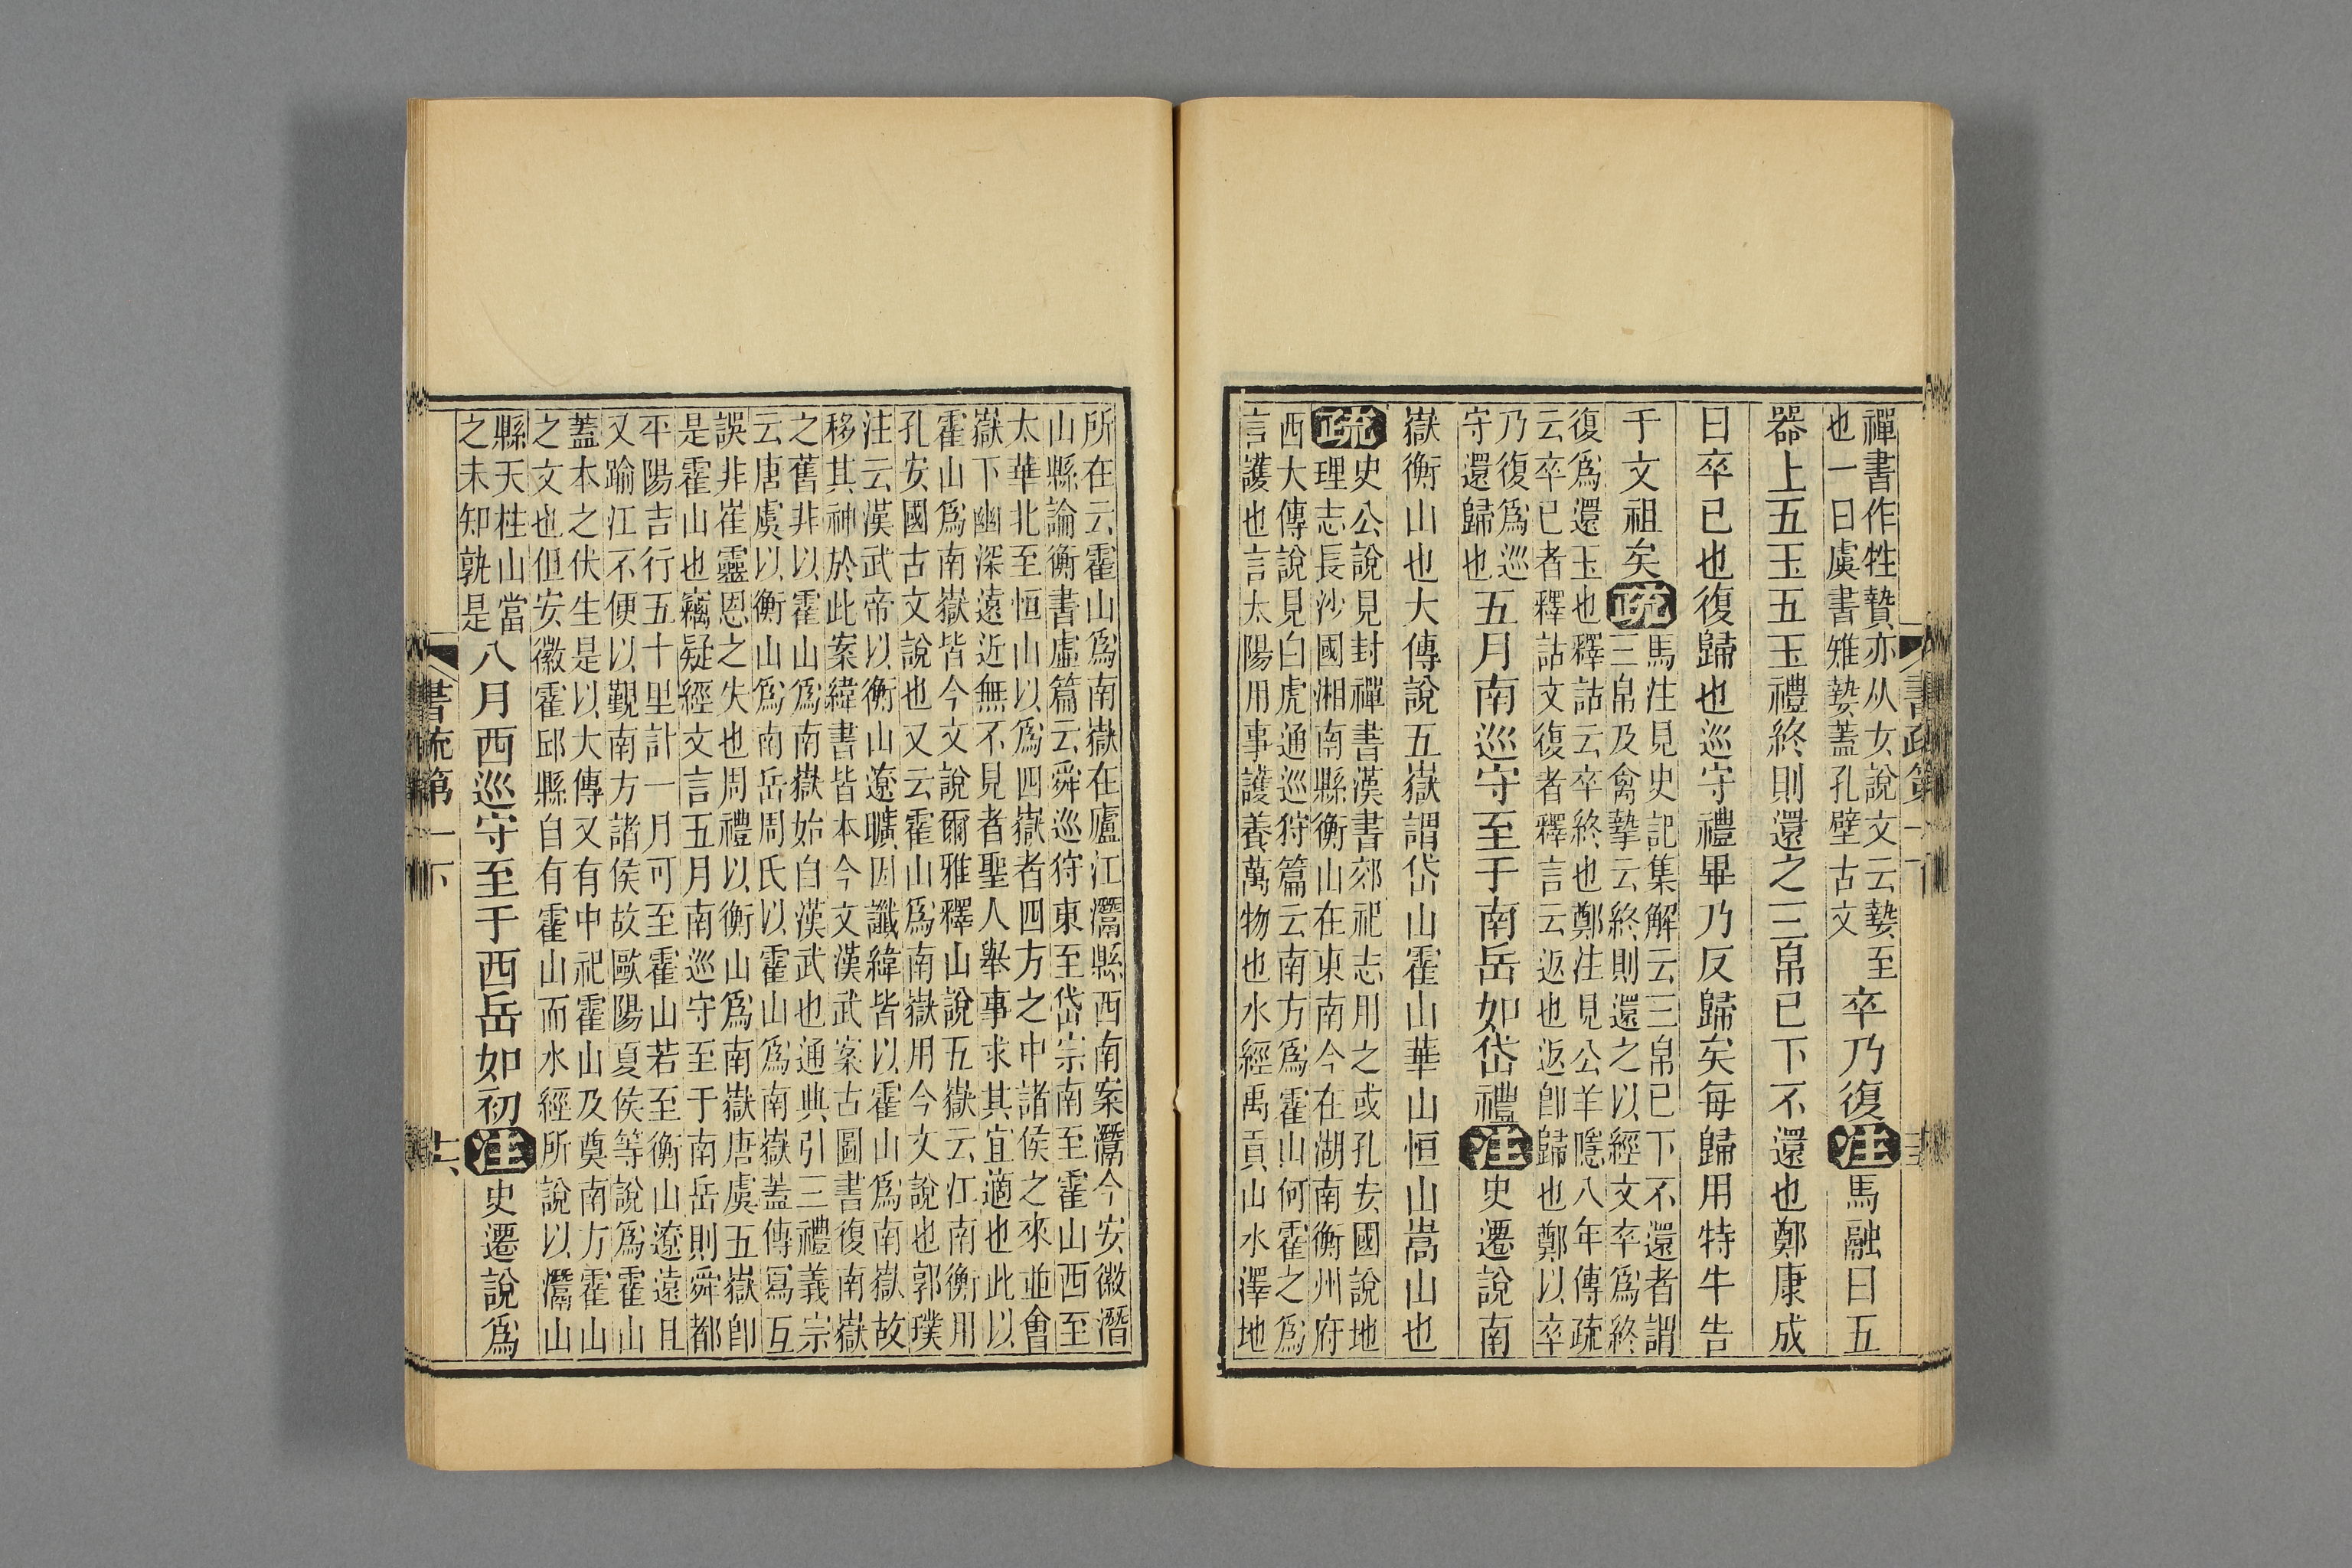 禪書作牲贄亦从女說文云㜘至
也一曰虞書雉㜘蓋孔壁古文
卒乃復注馬融曰五
器上五玉五玉禮終則還之三帛已下不還也鄭康成
曰卒已也復歸也巡守禮畢乃反歸矣每歸用特牛告
于文祖矣疏
馬注見史記集解云三帛已下不還者謂
三帛及禽摯云終則還之以經文卒爲終
復爲還玉也釋詁云卒終也鄭注見公羊隱八年傳疏
云卒已者釋詁文復者釋言云返也返卽歸也鄭以卒
乃復爲巡
守還歸也
五月南巡守至于南岳如岱禮注史遷說南
嶽衡山也大傳說五嶽謂岱山霍山華山恒山嵩山也
疏
史公說見封禪書漢書郊祀志用之或孔安國說地
理志長沙國湘南縣衡山在東南今在湖南衡州府
西大傳說見白虎通巡狩篇云南方爲霍山何霍之爲
言護也言太陽用事護養萬物也水經禹貢山水澤地
所在云霍山爲南嶽在廬江灊縣西南案灊今安徽潛
山縣論衡書虛篇云舜巡狩東至岱宗南至霍山西至
太華北至恒山以爲四嶽者四方之中諸侯之來並會
嶽下幽深遠近無不見者聖人舉事求其宜適也此以
霍山爲南嶽皆今文說爾雅釋山說五嶽云江南衡用
孔安國古文說也又云霍山爲南嶽用今文說也郭璞
注云漢武帝以衡山遼曠因讖緯皆以霍山爲南嶽故
移其神於此案緯書皆本今文漢武案古圖書復南嶽
之舊非以霍山爲南嶽始自漢武也通典引三禮義宗
云唐虞以衡山爲南岳周氏以霍山爲南嶽蓋傳寫互
誤非崔靈恩之失也周禮以衡山爲南嶽唐虞五嶽卽
是霍山也竊疑經文言五月南巡守至于南岳則舜都
平陽吉行五十里計一月可至霍山若至衡山遼遠且
又踰江不便以覲南方諸侯故歐陽夏侯等說爲霍山
蓋本之伏生是以大傳又有中祀霍山及奠南方霍山
之文也但安徽霍邱縣自有霍山而水經所說以灊山
縣天柱山當
之未知孰是
八月西巡守至于西岳如初注史遷說爲
書疏第一下